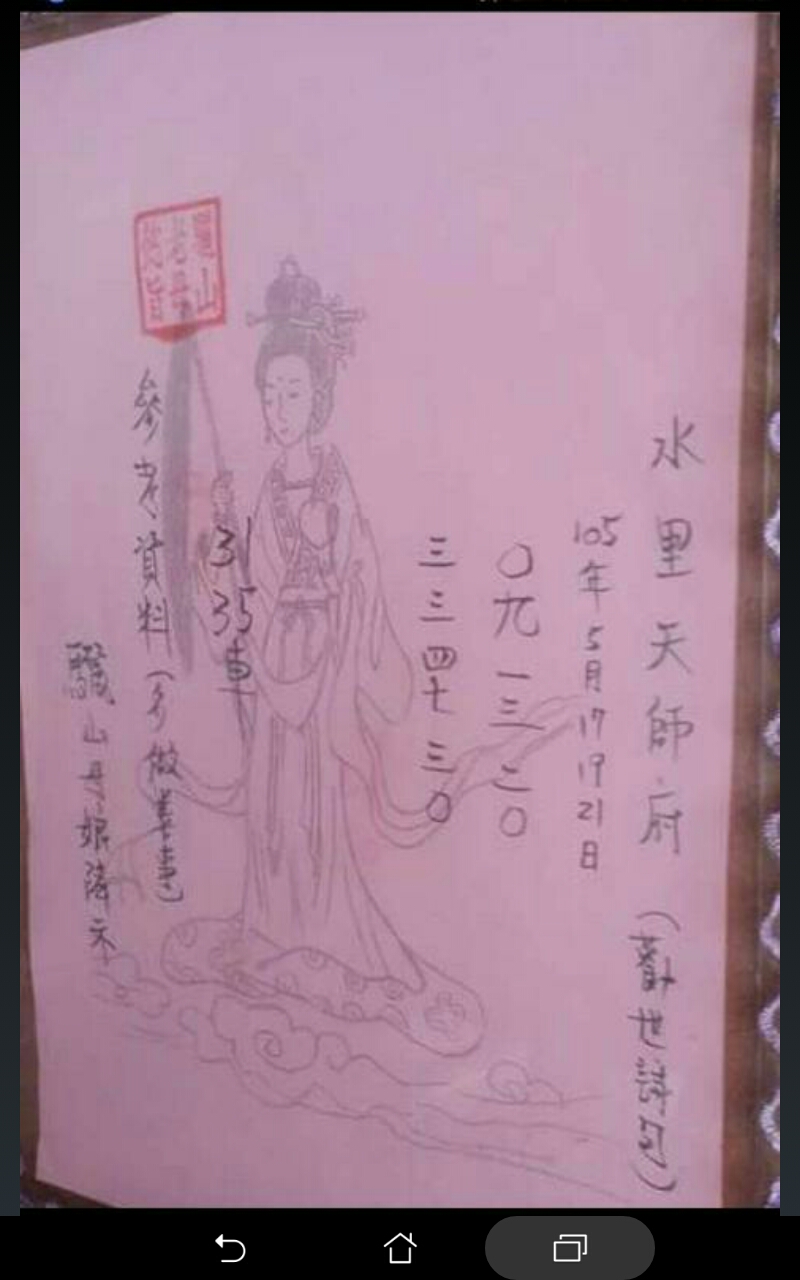 水里天師府（勸世詩句）
105年5月17 19 21日
〇九一三二〇
三三四七三〇
31 35車
參考資料（多做善事）
驪山母娘降示
驪山
老母